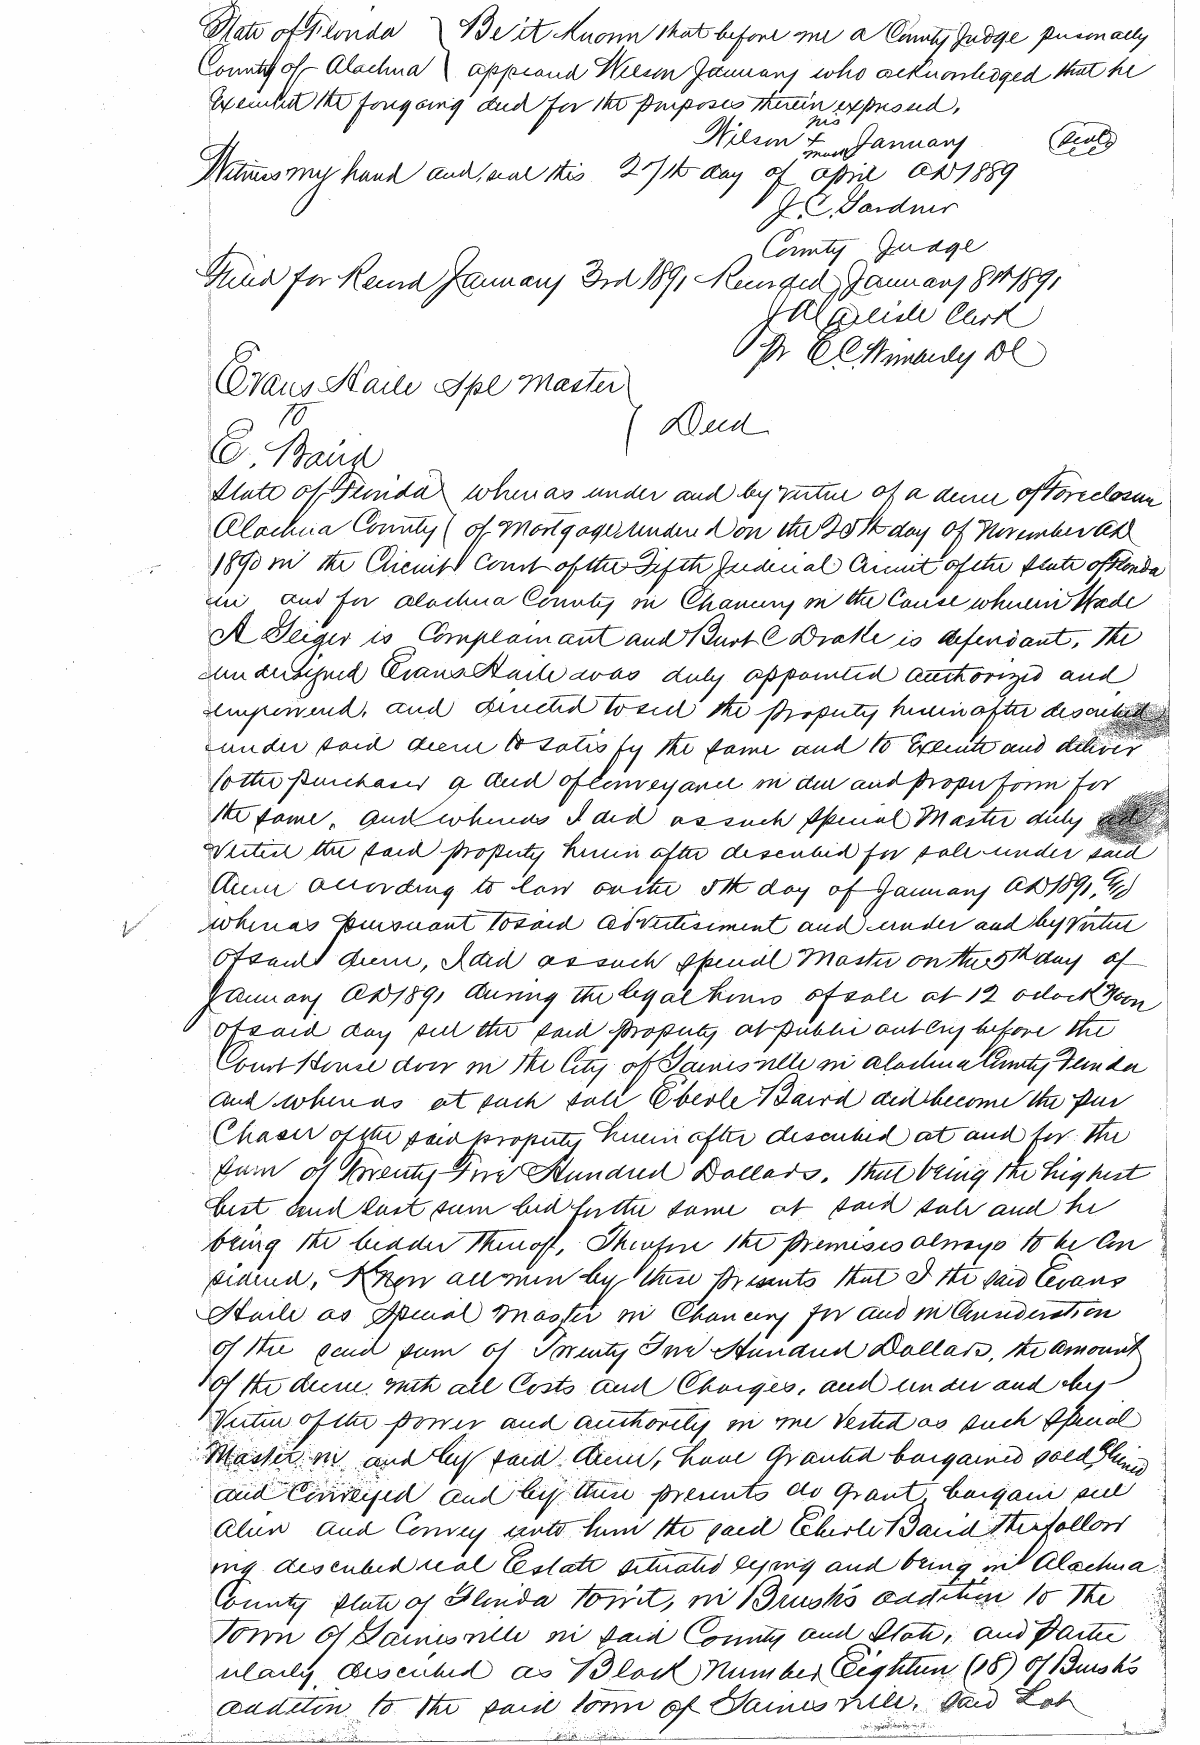 State of Florida ) Be it Known that before me a County Judge personally
County of Alachua ) appeared Wilson January who acknowledged that he
Executed the foregoing deed for the purposes therein expressed.
his
Wilson + January (Seal)
mark
Witness my hand and seal this 27th day of april AD 1889
J. C. Gardner
County Judge
Filed for Record January 3rd 1891 Recorded January 8th 1891
J A Carlisle Clerk
pr E C Wimberly DC
Evans Haile Spl Master
To
Deed
E. Baird
State of Florida ) whereas under and by virtue of a decree of Foreclosure
Alachua County ( of Mortgage rendered on the 25th day of November AD
1890 in the Circuit Court of the Fifth Judicial Circuit of the State of Florida
in and for alachua County in Chancery in the Cause wherein Wade
A Geiger is Complainant and Burt C Drake is defendant, the
undersigned Evans Haile was duly appointed authorized and
empowered, and directed to sell the property herein after described
under said decree to satisfy the same and to Execute and deliver
to the purchaser a deed of Conveyance in due and proper form for
the same, and whereas I did as such Special Master duly ad
vertise the said property herein after described for sale under said
decree according to law on the 5th day of January AD 1891, And
whereas pursuant to said advertisement and under and by virtue
of said decree, I did as such special Master on the 5th day of
January AD 1891 during the legal hours of sale at 12 oclock Noon
of said day sell the said property at public out Cry before the
Court House door in the City of Gainesville in alachua County Florida
and whereas at such sale Eberle Baird did become the pur
Chaser of the said property herein after described at and for the
sum of Twenty Five Hundred Dollars, that being the highest
best and last sum bid for the same at said sale and he
being the bidder thereof, Therefore the premises always to be Con
sidered, Know all men by these presents that I the said Evans
Haile as Special Master in Chancery for and in Consideration
of the said sum of Twenty Five Hundred Dollars, the amount
of the decree with all Costs and Charges, and under and by
Virtue of the power and authority in me vested as such Special
Master in and by said decree, have Granted bargained sold Aliened
and Conveyed and by these presents do Grant, bargain sell
alien and Convey unto him the said Eberle Baird the follow
ing described real Estate situated lying and being in Alachua
County state of Florida towit, in Brush's addition to the
town of Gainesville in said County and State, and partic
ularly described as Block Number Eighteen (18) of Brush's
addition to the said town of Gainesville, Said Lot